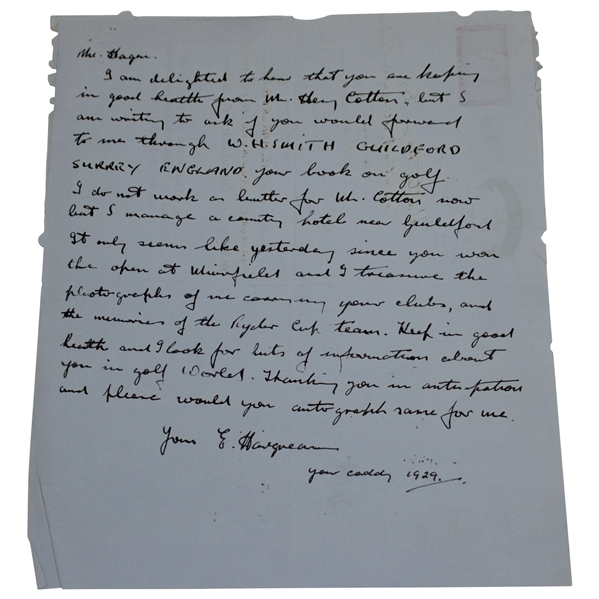 Mr. Hagen.
I am delighted to hear that you are keeping
in good health from Mr. Henry Cotton, but I
am writing to ask if you would forward
to me through W.H.SMITH GUILDFORD
SURREY ENGLAND your book on golf
I do not work as butler for Mr. Cotton now
but I manage a country hotel near Guildford
It only seems like yesterday since you won
the open at Muirfield and I treasure the
photographs of me carrying your clubs, and
the memories of the Ryder Cup team. Keep in good
health and I look for bits of information about
you in golf World. Thanking you in anticipation
and please would you autograph same for me.
Yours E.
your caddy 1929.